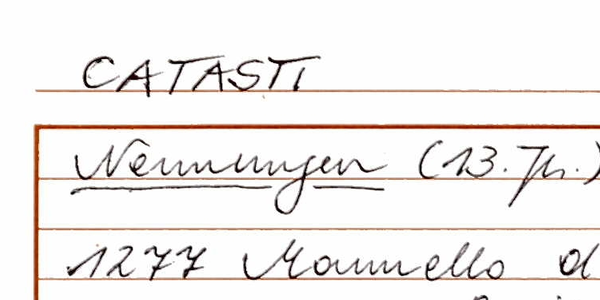 CATASTI
Nennungen (13. Jh.)
1277 Mannello d